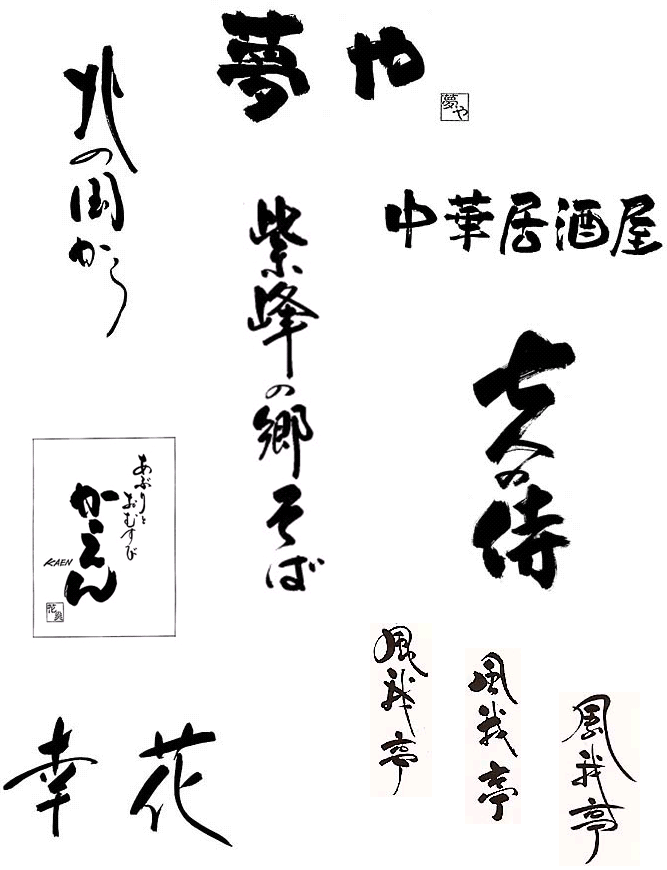 夢や
夢や
北の国から
中華居酒屋
紫峰の郷そば
七人の侍
あぶりと
おむすび
かえん
KAEN
風我亭
風我亭
風我亭
幸花